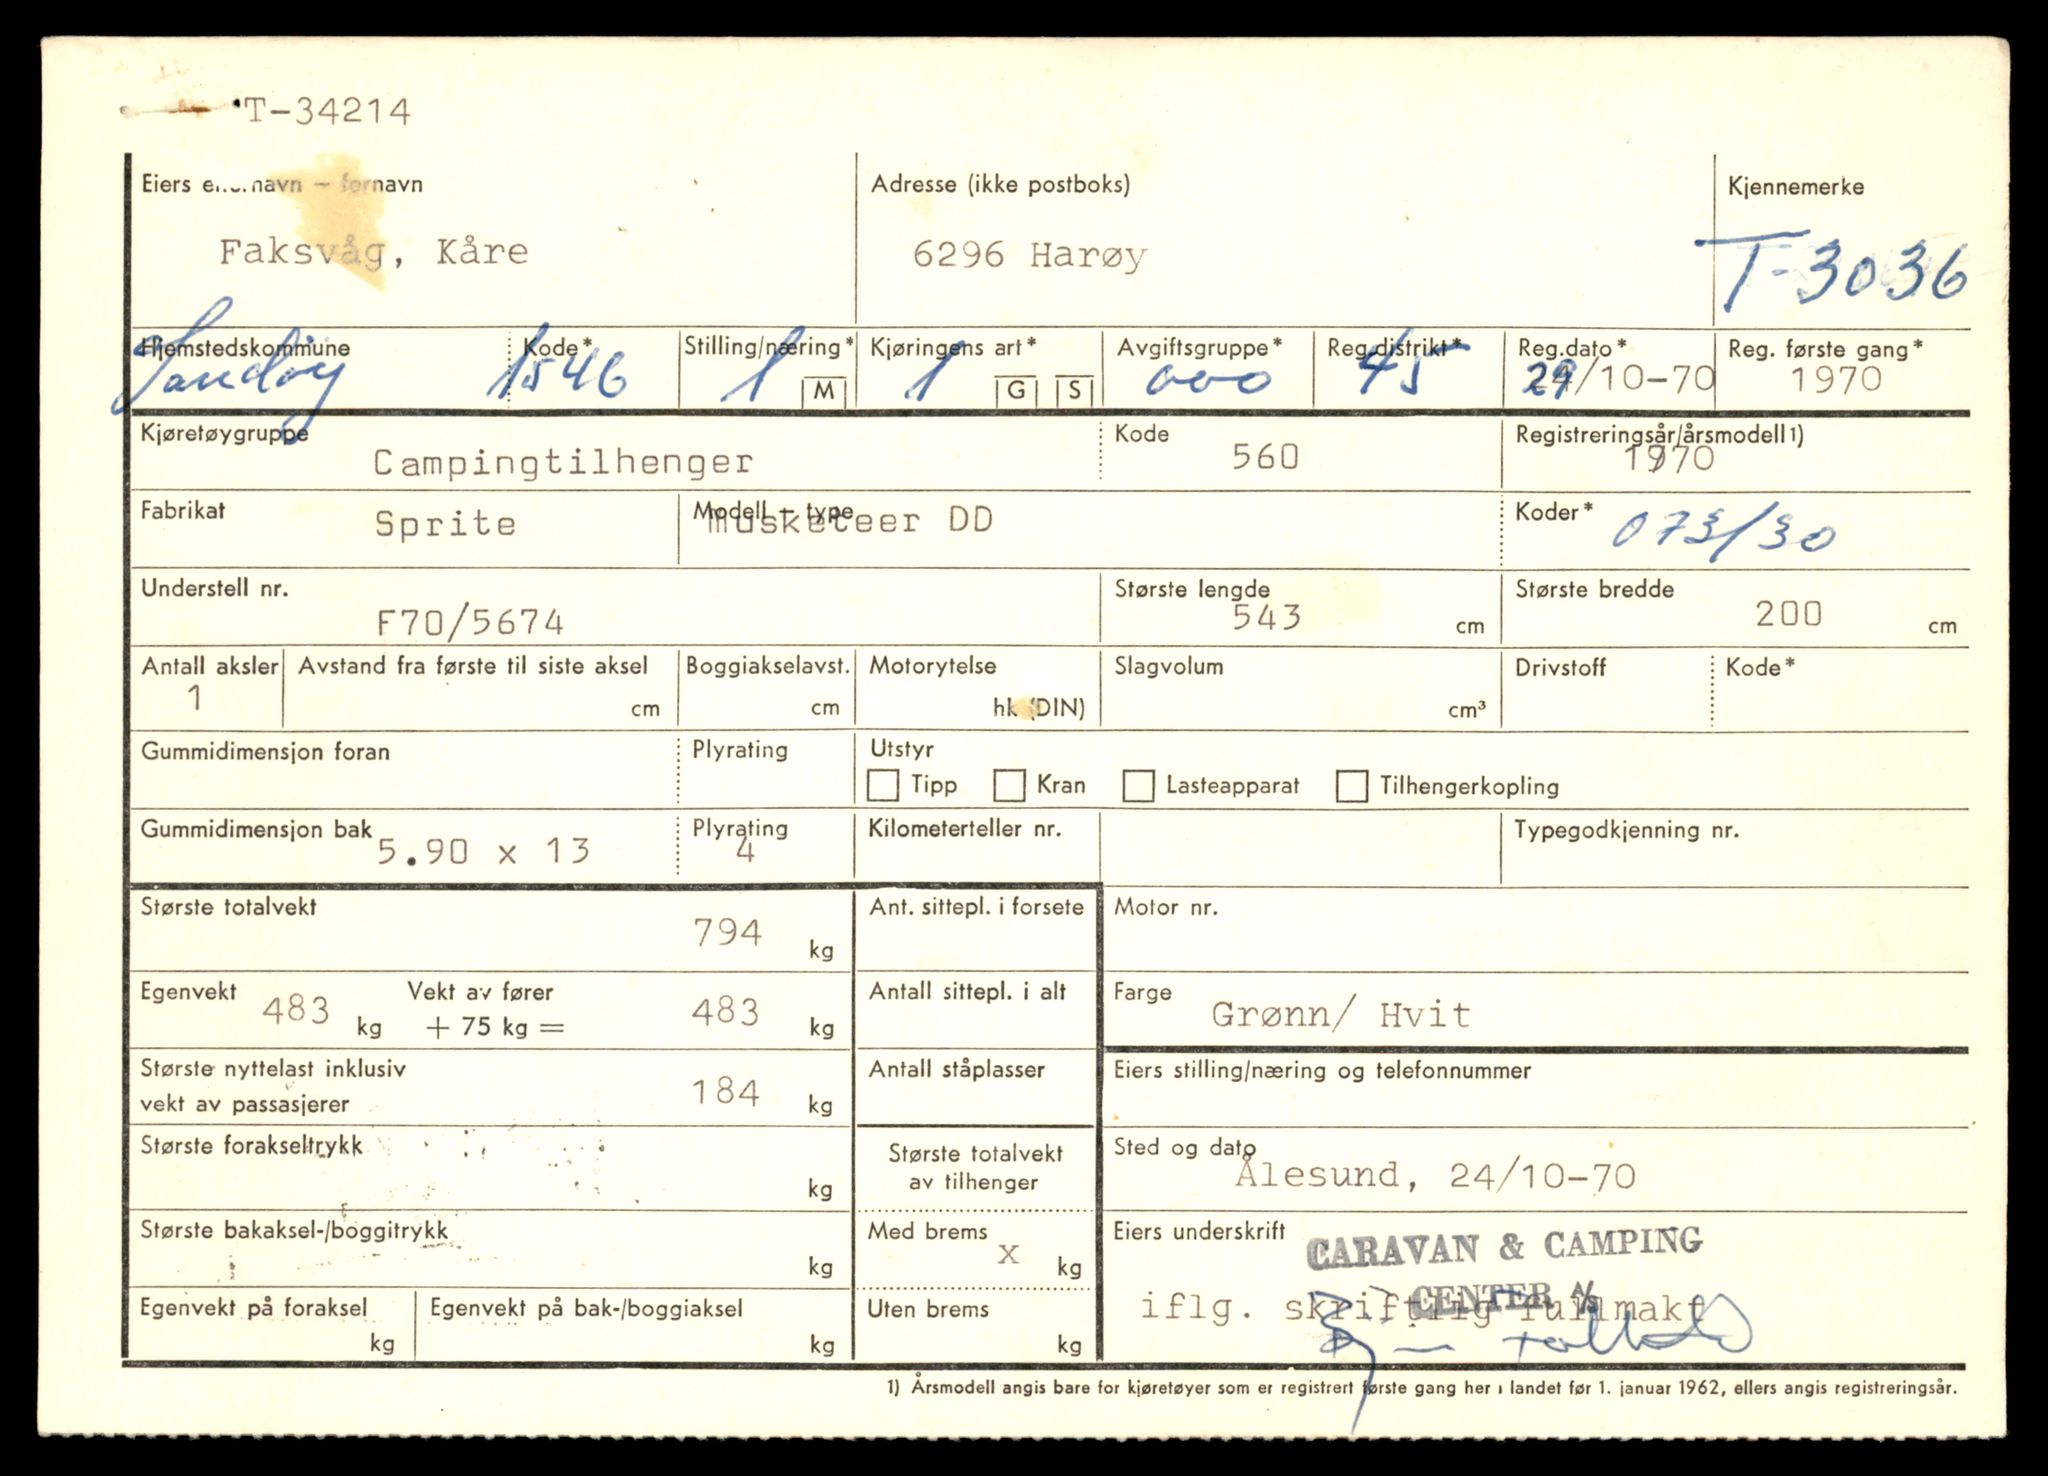 T-34214
Eiers etternavn – fornavn Adresse (ikke postboks) Kjennemerke
Faksvåg, Kåre 6296 Harøy T-3036
Hjemstedskommune Kode* Stilling/næring* Kjøringens art* Avgiftsgruppe* Reg.distrikt* Reg.dato* Reg. første gang*
Sandøy 1546 1 M 1 G S 000 45 29/10-70 1970
Kjøretøygruppe Kode Registreringsår/årsmodell1)
Campingtilhenger 560 1970
Fabrikat Modell – type Koder*
Sprite Musketeer DD 073/30
Understell nr. Største lengde Største bredde
F70/5674 543 cm 200 cm
Antall aksler Avstand fra første til siste aksel Boggiakselavst. Motorytelse Slagvolum Drivstoff Kode*
1 cm cm hk (DIN) cm³
Gummidimensjon foran Plyrating Utstyr
Tipp Kran Lasteapparat Tilhengerkopling
Gummidimensjon bak Plyrating Kilometerteller nr. Typegodkjenning nr.
5.90 x 13 4
Største totalvekt Ant. sittepl. i forsete Motor nr.
794 kg
Egenvekt Vekt av fører Antall sittepl. i alt Farge
483 kg + 75 kg = 483 kg Grønn/ Hvit
Største nyttelast inklusiv Antall ståplasser Eiers stilling/næring og telefonnummer
vekt av passasjerer 184 kg
Største forakseltrykk Største totalvekt Sted og dato
kg av tilhenger Ålesund, 24/10-70
Største bakaksel-/boggitrykk Med brems Eiers underskrift
kg x kg CARAVAN & CAMPING
CENTER A/S
Egenvekt på foraksel Egenvekt på bak-/boggiaksel Uten brems iflg. skriftlig fullmakt
kg kg kg
1) Årsmodell angis bare for kjøretøyer som er registrert første gang her i landet før 1. januar 1962, ellers angis registreringsår.